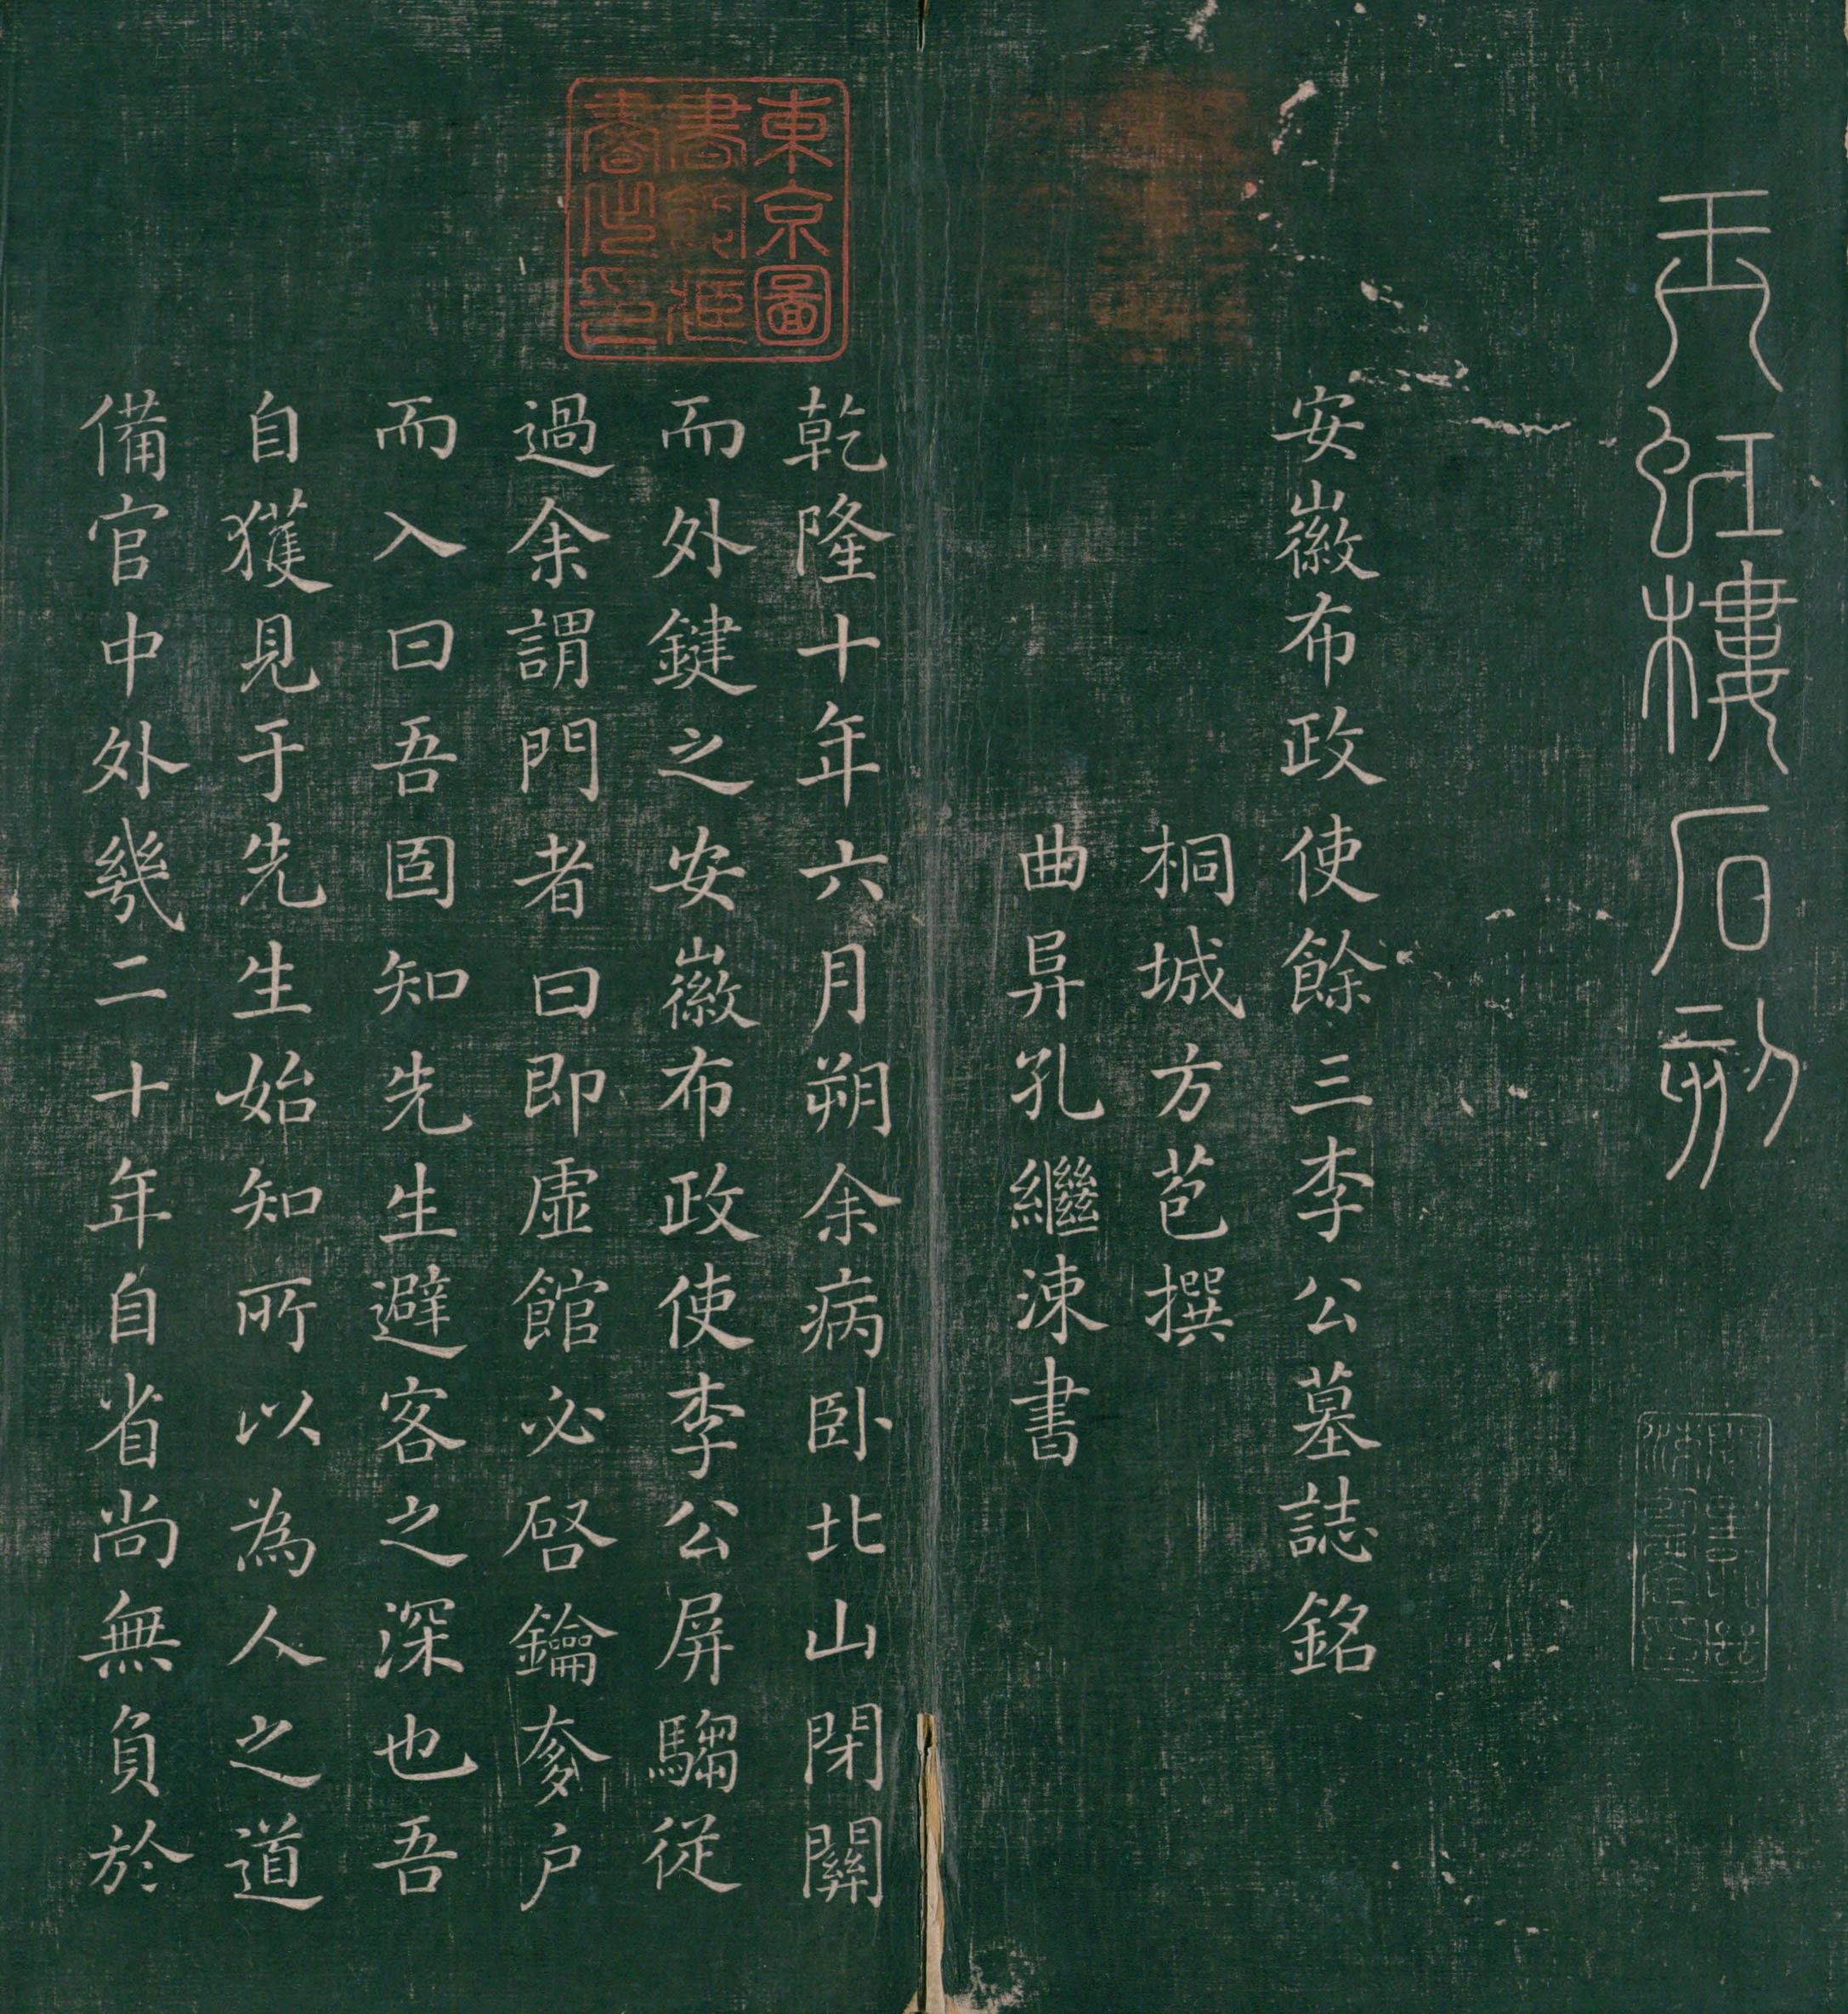 玉虹樓石刻
安徽布政使餘三李公墓誌銘
桐城方苞撰
曲阜孔繼涑書
東京圖
書館藏
書之印
乾隆十年六月朔余病臥北山閉關
而外鍵之安徽布政使李公屏騶從
過余謂門者曰即虛館必啓鑰奓户
而入曰吾固知先生避客之深也吾
自獲見于先生始知所以為人之道
備官中外幾二十年自省尚無負於